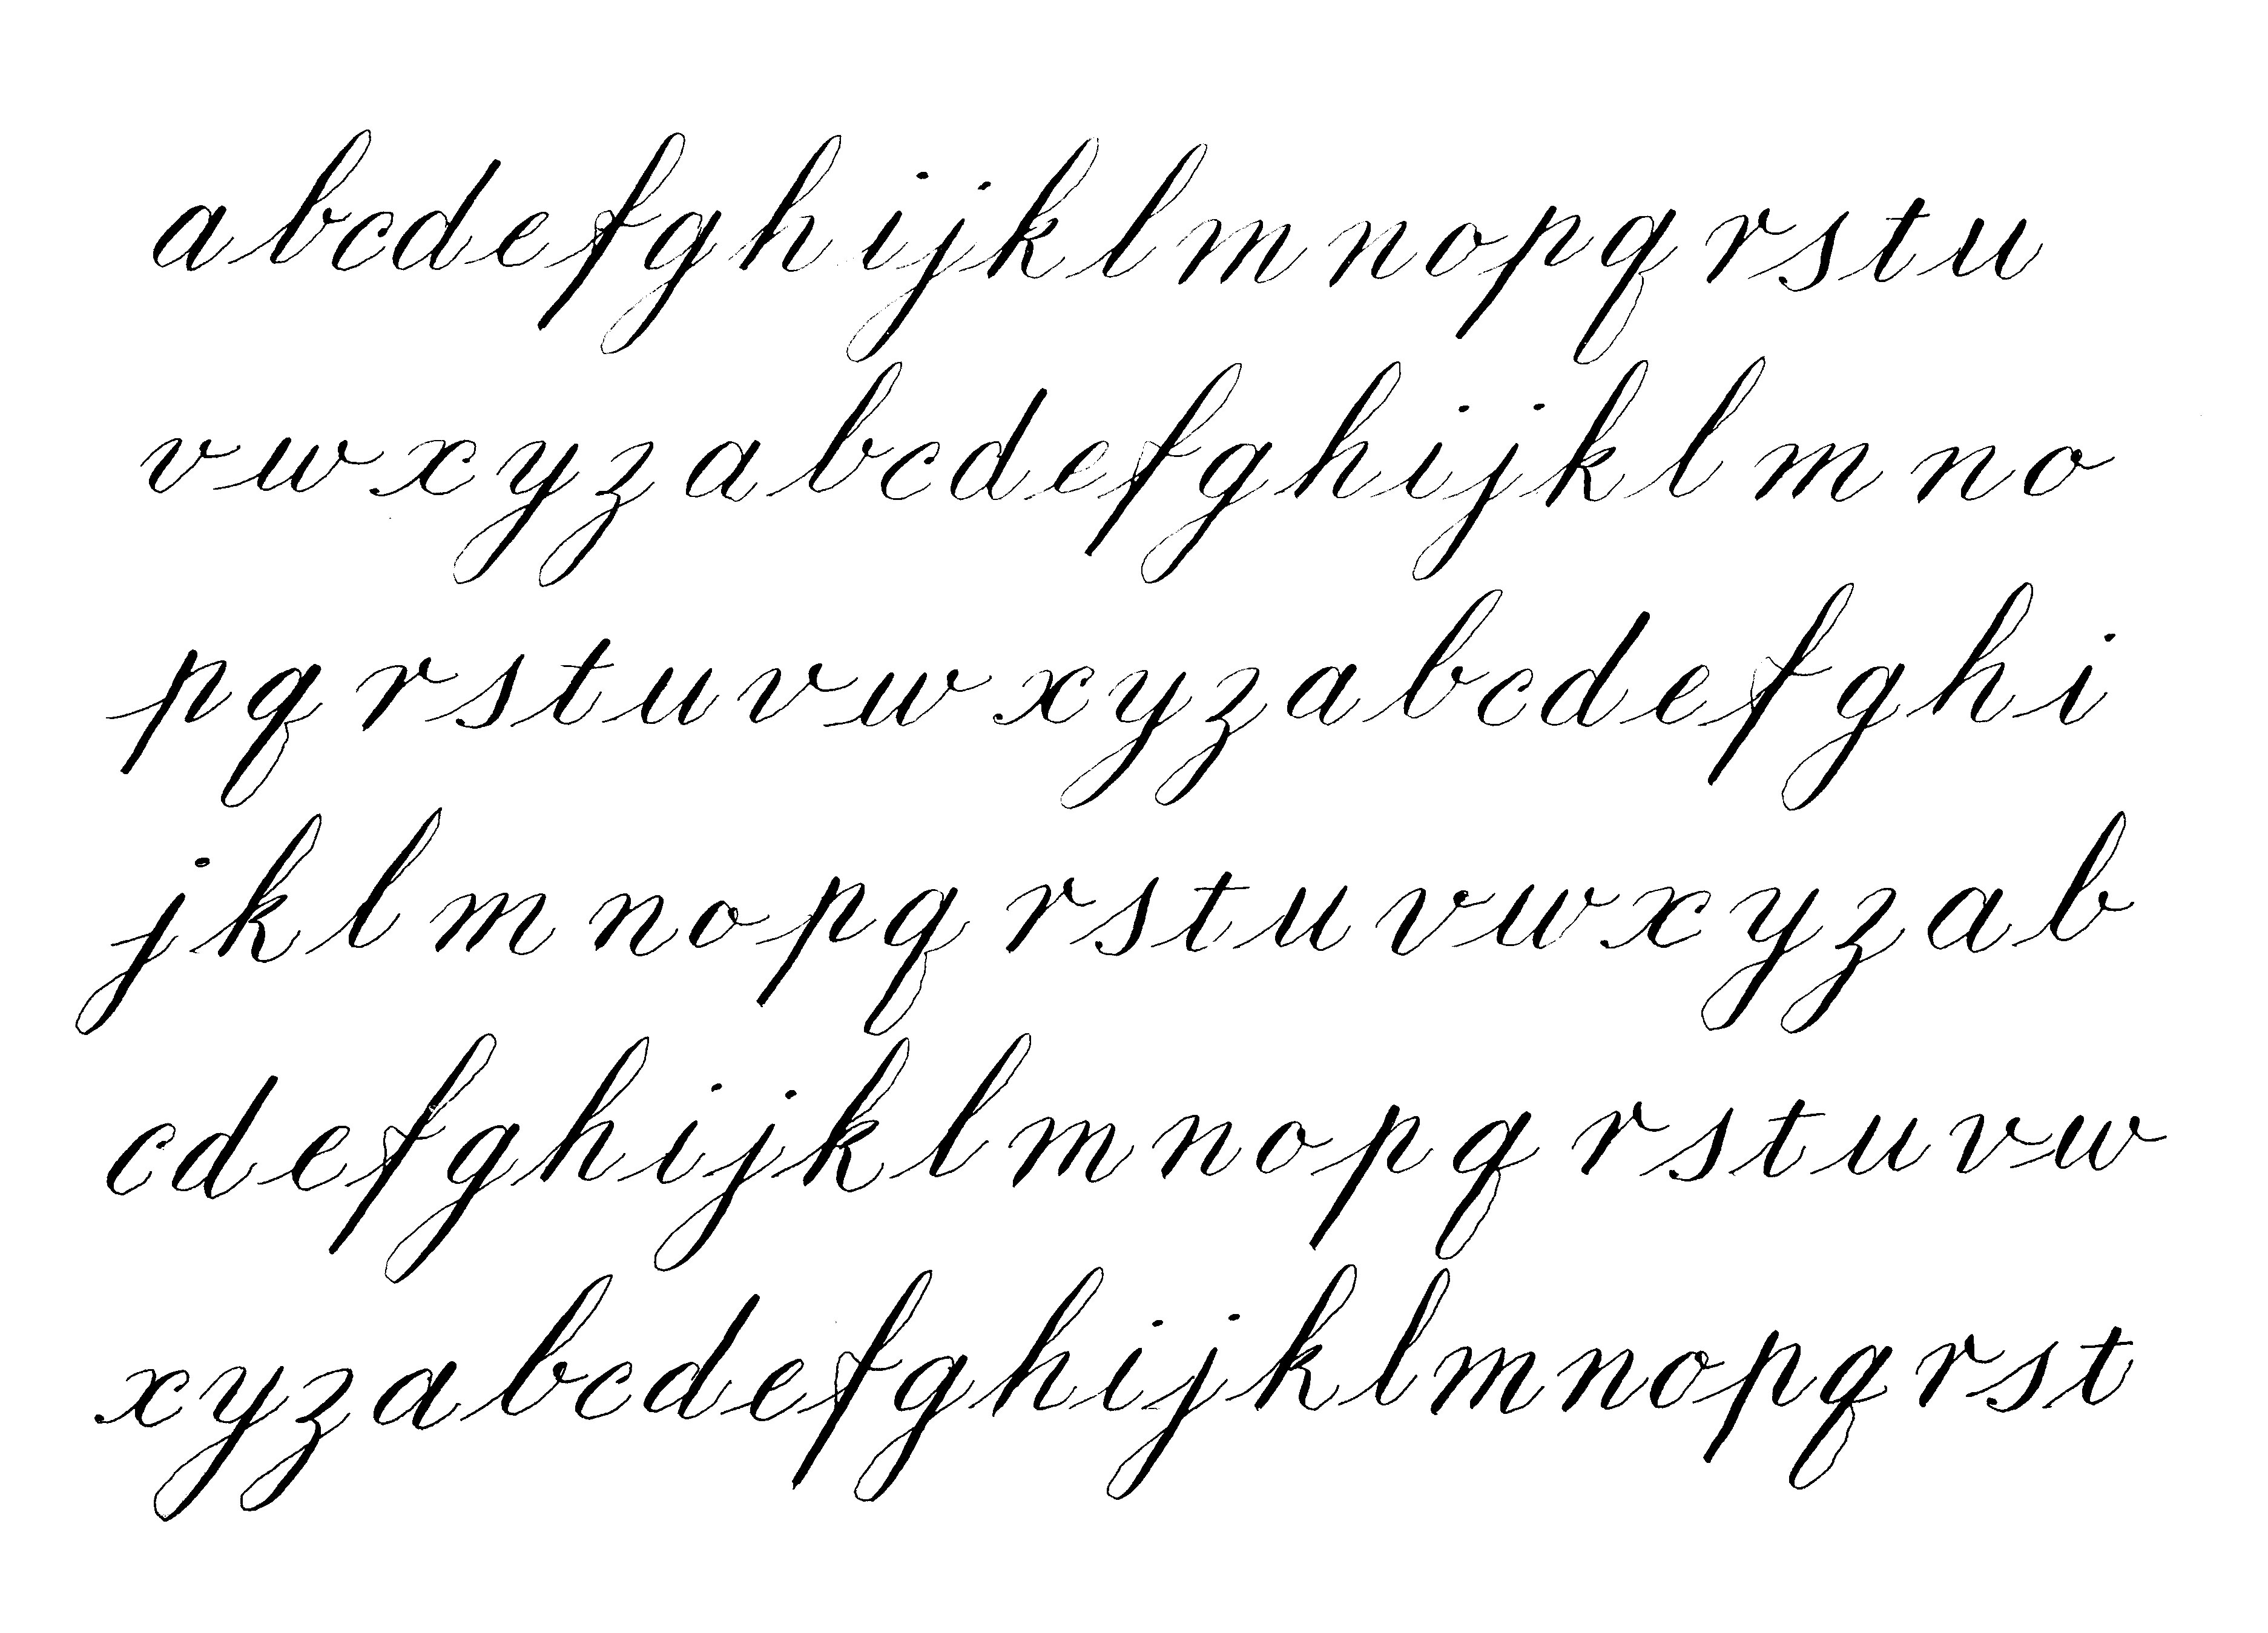 abcdefghijklmnopqrstu
vwxyzabcdefghijklmno
pqrstuvwxyzabcdefghi
jklmnopqrstuvwxyzab
cdefghijklmnopqrstuvw
xyzabcdefghijklmnopqrst